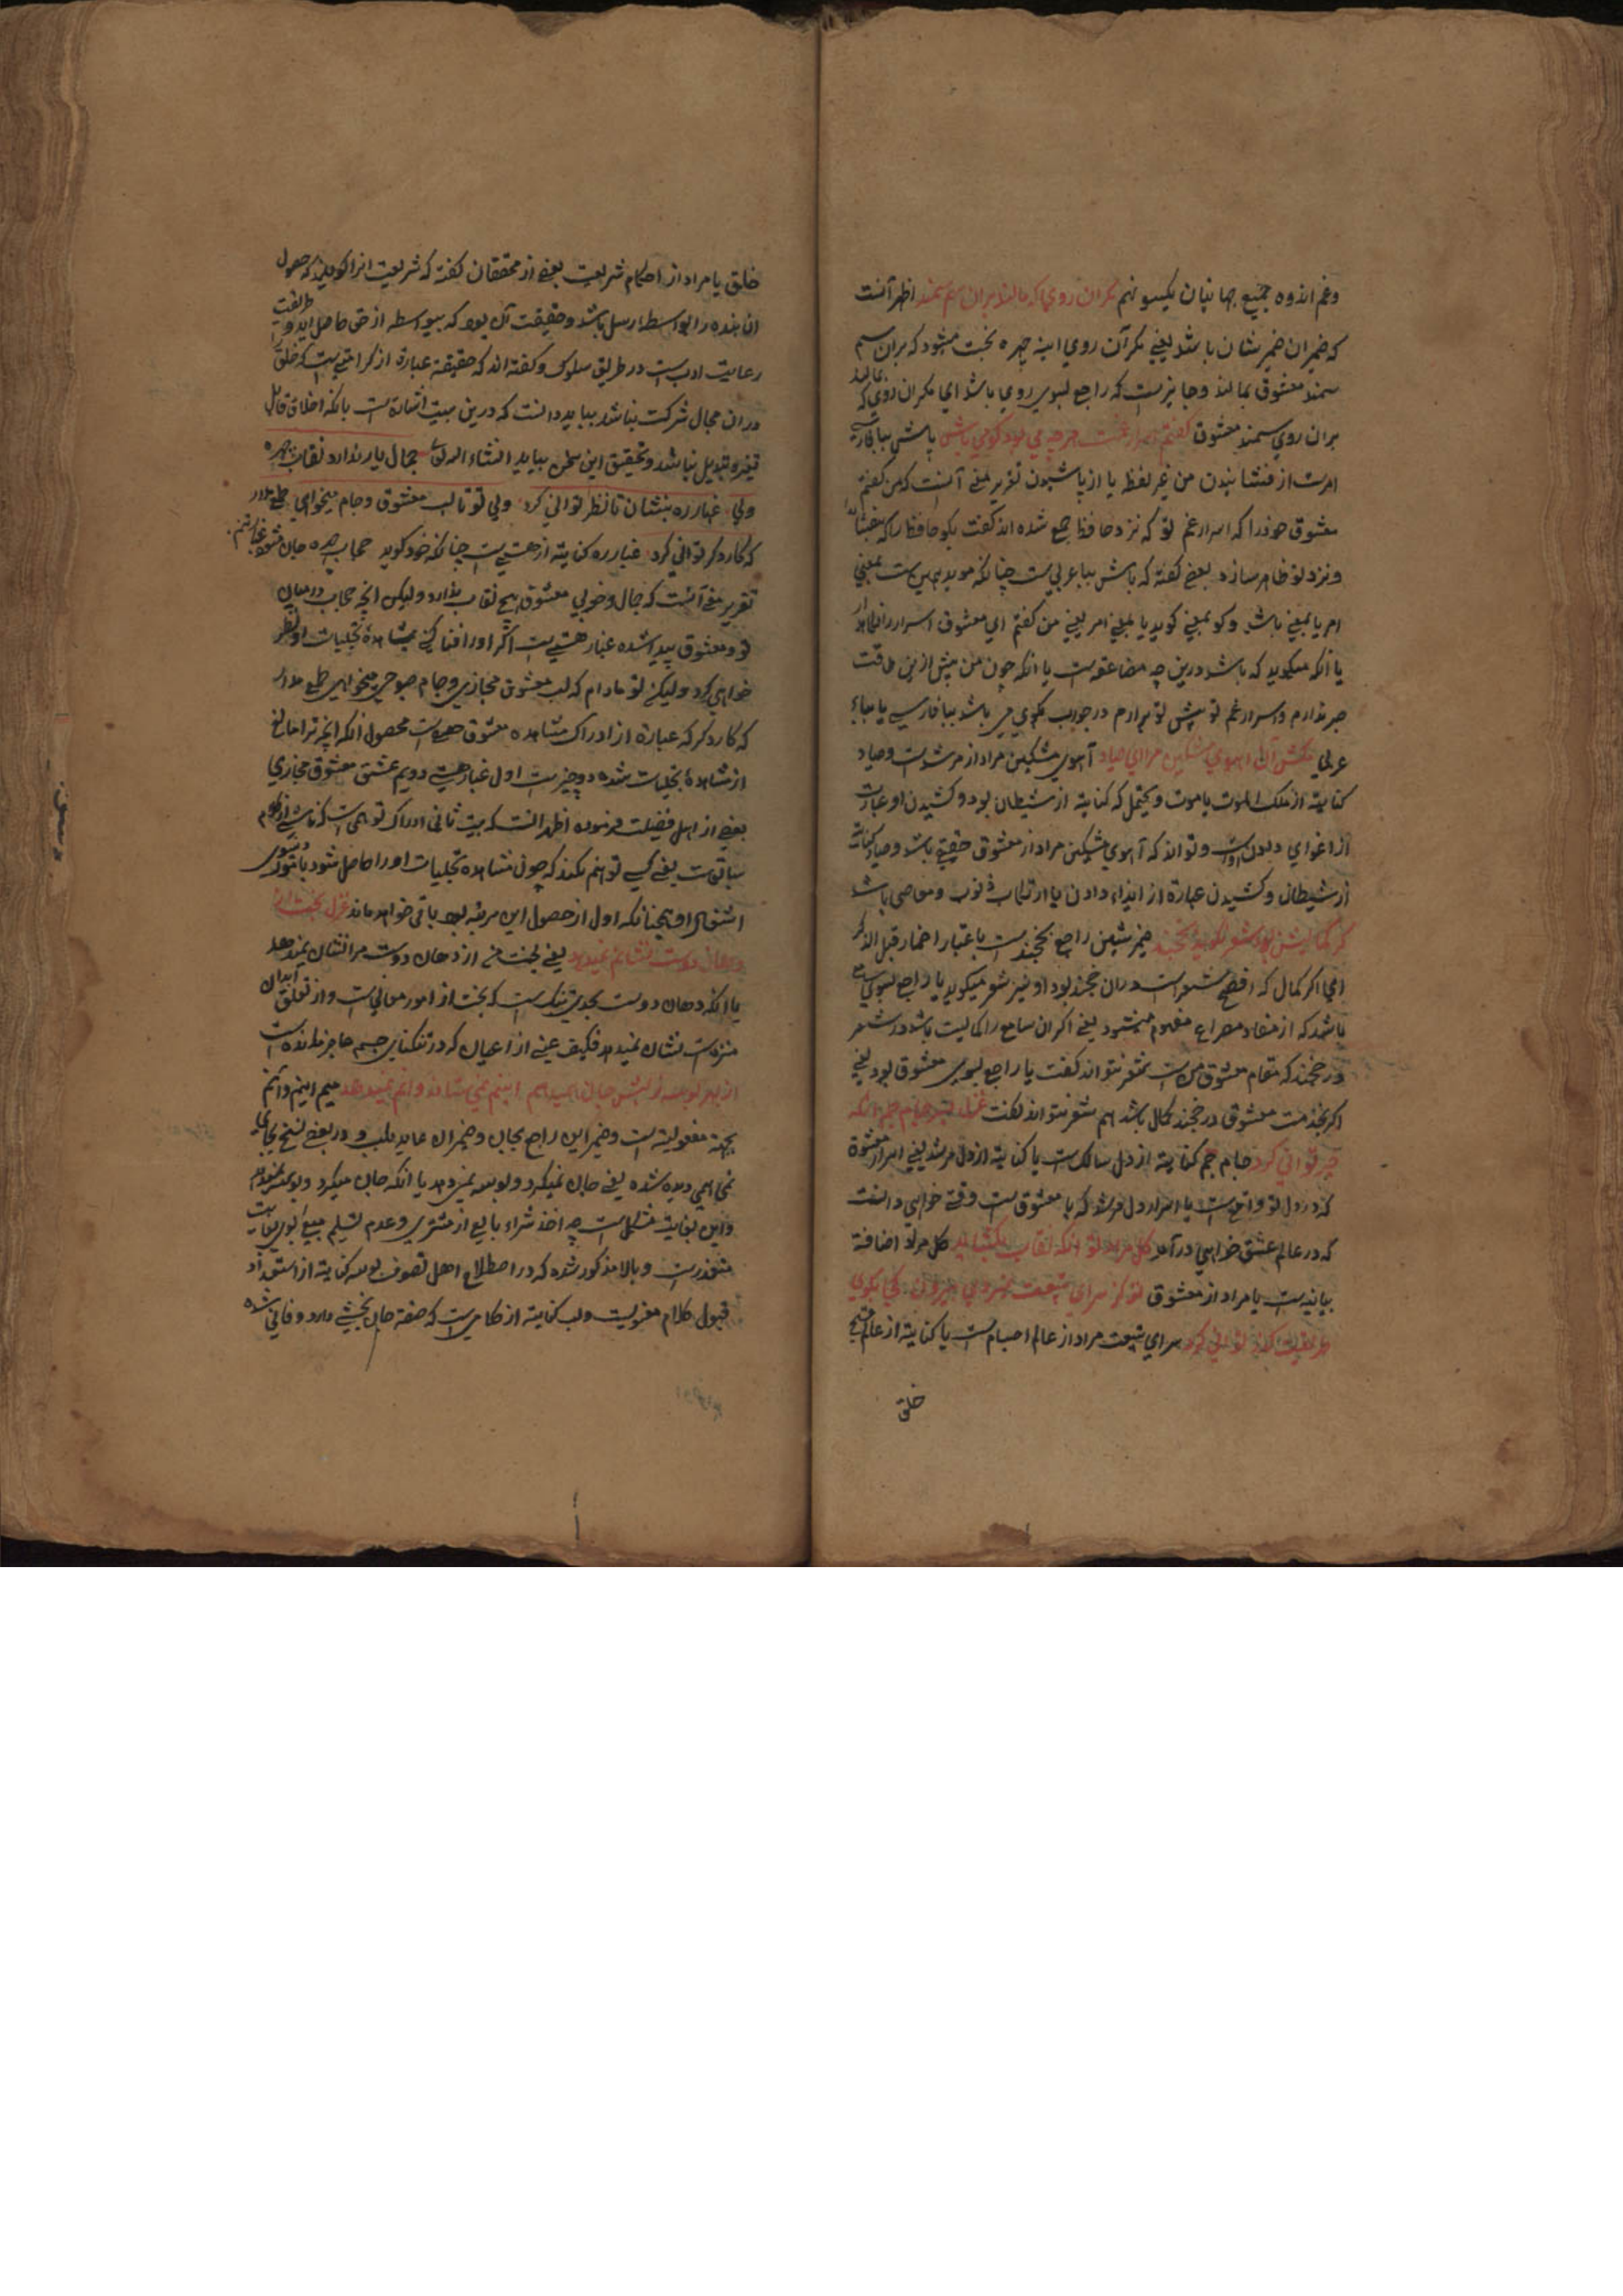 وغم اندوه جمیع جهانیان یکسو نهم مکران روی که مالند بران سم سمند اظهر آنست
که ضمیران ضمیر شان باشد یعنی مکر آن روی اینه چهره بخت میشود که بران سم
سمند معشوق بمالند و جایزست که راجع بسوی روی باشد ای مکران روی که می مالند
بران روی سمند معشوق کفتم اسرار غمت هرچه بود کو می باش پاش بباء فارسی
امرست از فشانیدن من غیر لفظ یا از پاشیدن تقریر معنی آنست که من کفتم
معشوق خود را که اسرار غم تو که نزد حافظ جمع شده اند کفت بکو حافظ را که بفشاند
و نزد تو ظاهر سازد بعضی کفته که باش بباء عربی ست چنانکه موید این ست بمعنی
امر یا بمعنی باشد و کو بمعنی کوید یا بمعنی امر یعنی من کفتم ای معشوق اسرار را
یا آنکه میکوید که باشد درین چه مضائقه ست یا آنکه چون من پیش ازین طاقت
صبر ندارم و اسرار غم تو پیش تو برارم در جواب بکوی می باش بباء فارسی یا بباء
عربی مکش آن آهوی مشکین مرا ای صیاد آهوی مشکین مراد از مرشدست و صیاد
کنایة از ملک الموت یا موت و یحتمل که کنایة از شیطان بود و کشیدن او عبارت
از اغوای دادن اوست و تواند که آهوی مشکین مراد از معشوق حقیقی باشد و صیاد کنایت
از شیطان و کشیدن عبارة از ایذاء دادن یا ارتکاب ذنوب و معاصی باشد
کر کمالیش بود شعر نکوید بخجند ضمیر شین راجع بخجندست باعتبار اضمار قبل الذکر
ای اکر کمال که افصح شعراست دران خجند بود او نیز شعر میکوید یا راجع بسوی سامع
باشد که از مفاد مصراع مفهوم میشود یعنی اکر آن سامع را کمالیت باشد در شعر
در خجند که مقام معشوق من ست شعر نتواند کفت یا راجع بسوی معشوق بود یعنی
اکر بخدمت معشوق در خجند کمال باشد هم شعر نتواند کفت غزل بسر جام جم آنکه
نظر توانی کرد جام جم کنایة از دل سالک ست یا کنایة از دل مرشد یعنی اسرار معشوق
که در دل تو واقع ست یا اسرار دل مرشد که با معشوق ست وقتی خواهی دانست
که در عالم عشق خواهی در آمد کل مراد تو آنکه نقاب بکشاید کل مراد اضافة
بیانیه ست یا مراد از معشوق تو کز سرای طبیعت نمیروی بیرون کجا بکوی
طریقت کذر توانی کرد سرای طبیعت مراد از عالم اجسام ست یا کنایة از عالم
خلق
خلق یا مراد از احکام شریعت بعضی از محققان کفته که شریعت انرا کویند که حصول
ان بنده را بواسطه رسل باشد و حقیقت آن بود که بیواسطه از حق حاصل اید و طریقت
رعایت ادب ست در طریق سلوک و کفته اند که حقیقة عبارة از کرامتی ست که خلق را
دران مجال شرکت نباشد بباید دانست که درین بیت اشارة ست بانکه اخلاق قابل
تغیر و تبدیل نباشد و تحقیق این سخن بیاید انشاء الله تعالی جمال یار ندارد نقاب چهره
ولی غبار ره بنشان تا نظر توانی کرد ولی تو تا لب معشوق و جام میخواهی طمع مدار
که کار دکر توانی کرد غبار ره کنایة از هستی ست چنانکه خود کوید حجاب چهره جان میشود غبار تنم
تقریر معنی آنست که جمال و خوبی معشوق هیچ نقاب ندارد و لیکن انچه حجاب درمیان
تو و معشوق پیدا شده غبار هستی ست اکر او را فنا کنی بمشاهدهٔ تجلیات او نظر
خواهی کرد ولیکن تو مادام که لب معشوق مجازی و جام صبوحی میخواهی طمع مدار
که کار دکر که عبارة از ادراک مشاهده معشوق حقیقی ست محصول آنکه انچه ترا مانع
از مشاهدهٔ تجلیات شده دو چیزست اول غبار هستی دویم عشق معشوق مجازی
بعضی از اهل فضیلت فرموده اظهر آنست که بیت ثانی ادراک توهمی ست که ناشی از کلام
سابق ست یعنی کسی توهم نکند که چون مشاهده تجلیات او را حاصل شود با وجود
اشتغال او چنانکه اول از حصول این مرتبه بود باقی خواهد ماند غزل بخت از
دهان دوست نشانم نمیدهد یعنی بخت من از دهان دوست مرا نشان نمیدهد
یا آنکه دهان دوست بحدی تنک ست که بخت از امور معانی ست و از تعلق ابدان
منزه ست نشان نمیدهد فکیف عینی از اعیان که در تنکنای جسم عاجز مانده است
از بهر بوسه ز لبش جان همیدهم اینم نمی ستاند و آنم نمیدهد میم اینم و آنم
بجهة مفعولیة ست و ضمیر این راجع بجان و ضمیر ان عاید بلب و در بعضی نسخ بجای
نمی همی دیده شده یعنی جان نمیکیرد و بوسه نمیدهد یا انکه جان میکیرد و بوسه نمیدهد
و این بغایة مشکل ست چه اخذ شراء بایع از مشتری و عدم تسلیم مبیع
متعذرست و بالا مذکور شده که در اصطلاح اهل تصوف بوسه کنایة از استعداد
قبول کلام معنویست و لب کنایة از کلامی ست که صفة جان بخشی دارد و فانی شده